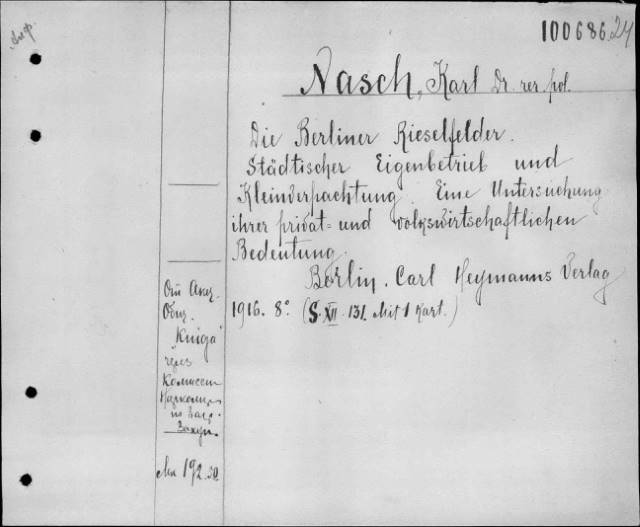 100686.24
Nasch, Karl Dr. rer. pol.
Die Berliner Rieselfelder.
Städtischer Eigenbetrieb und
Kleinverpachtung. Eine Untersuchung
ihrer privat- und volkswirtschaftlichen
Bedeutung.
Berlin. Carl Heymanns Verlag
1916. 8° (S. XII. 131. Mit 1 Kart.)
От Акц.
Общ.
"Книга"
через
Комиссию